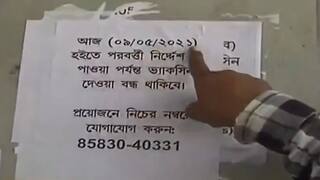 আজ (০৯/০৫/২০২১)
হইতে পরবর্ত্তী নির্দ্দেশ
পাওয়া পর্যন্ত ভ্যাকসিন
দেওয়া বন্ধ থাকিবে।
প্রয়োজনে নিচের নম্বরে
যোগাযোগ করুন:
85830-40331